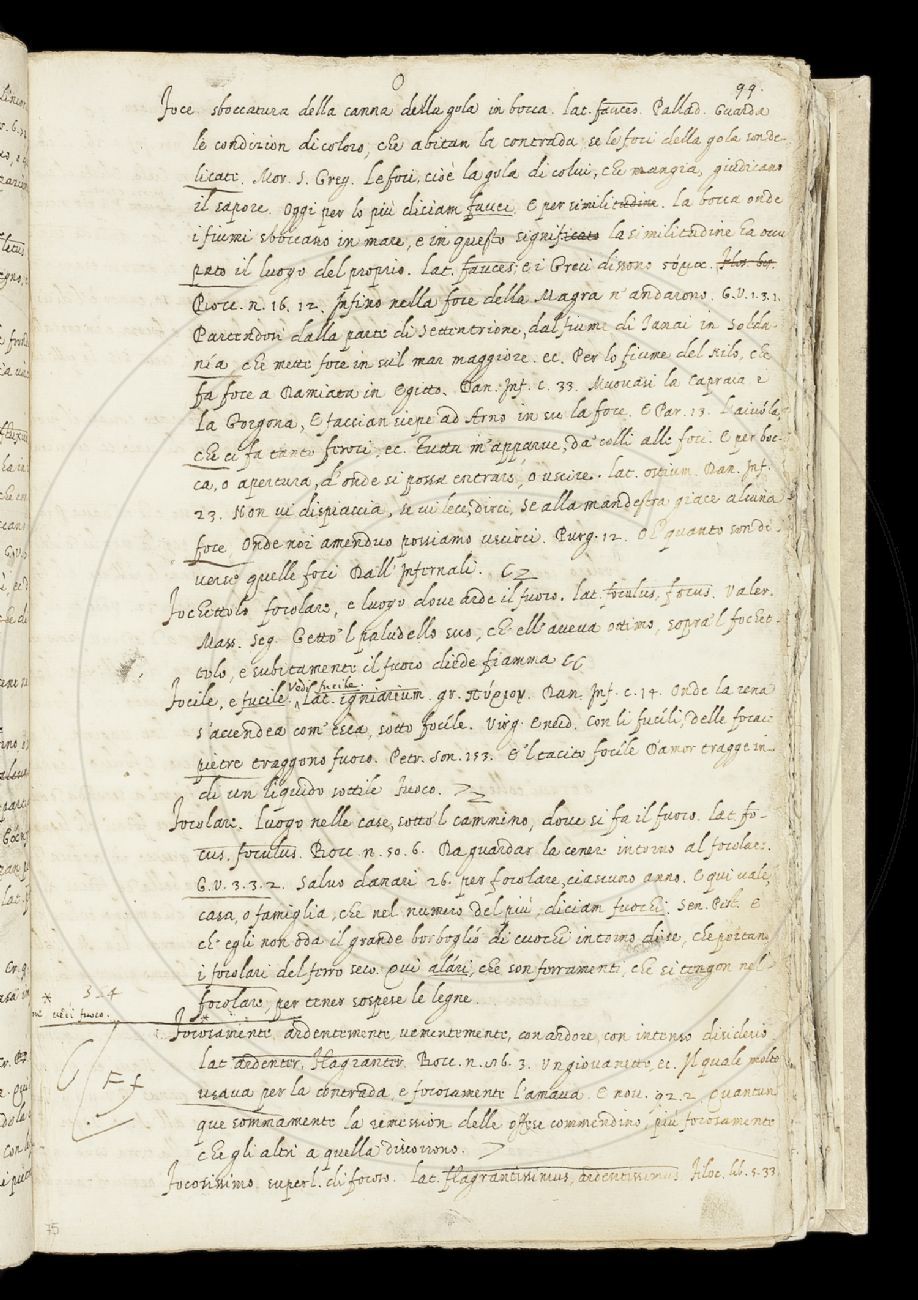 O
99.
Foce. sboccatura della canna della gola in bocca. lat. fauces. Pallad. Guarda
le condizion di coloro, che abitan la contrada, se le foci della gola son de-
licate. Mor. S. Greg. Le foci, cioè la gola di colui, che mangia, giudicano
il sapore. Oggi per lo più diciam fauci. E per similitudine. la bocca onde
i fiumi sboccano in mare, e in questo significato la similitudine ha occu
pato il luogo del proprio. lat. fauces, e i Greci dissono
Bocc. n. 16. 12. Infino nella foce della Magra n'andarono. G.V. 1. 3. 1.
Partendosi dalla parte di Settentrione, dal fiume di Tanai in Solda-
nía, che mette foce in sul mar maggiore. ec. Per lo fiume del Nilo, che
fa foce a Damiata in Egitto. Dan. Inf. c. 33. Muovasi la Capraia e
la Gorgona, E faccian siepe ad Arno in su la foce. E Par. 13. L'aiuola,
che ci fa tanto feroci, ec. Tutta m'apparve, da' colli alle foci. E per boc-
ca, o apertura, d'onde si possa entrare, o uscire. lat. ostium. Dan. Inf.
23. Non vi dispiaccia, se vi lece, dirci, Se alla man destra giace alcuna
foce, Onde noi amenduo possiamo uscirci. Purg. 12. O quanto son di-
verse quelle foci Dall'Infernali.
Fochettolo focolare, e luogo dove arde il fuoco. lat. foculus, focus. Valer.
Mass. Seg. Gettò 'l paludello suo, ch'ell'aveva ottimo, sopra 'l fochet-
tolo, e subitamente il fuoco diede fiamma
Focile, e fucile. Vedi fucile. Lat. igniarium. gr. πύριον. Dan. Inf. c. 14. Onde la rena
s'accendea com'esca, sotto focile. Virg. Eneid. Con li fucili, delle focaie
pietre traggono fuoco. Petr. Son. 153. E 'l tacito focile D'amor tragge in-
di un liquido sottile fuoco.
Focolare. Luogo nelle case, sotto 'l cammino, dove si fa il fuoco. lat. fo-
cus. foculus. Bocc. n. 50. 6. Da guardar la cenere intorno al focolare.
G.V. 3. 3. 2. Salvo danari 26. per focolare, ciascuno anno. E qui vale,
casa, o famiglia, che nel numero del più, diciam fuochi. Sen. Pist. E
ch'egli non oda il grande borboglío di cuochi intorno di se, che portano
i focolari del ferro seco. Qui alári, che son ferramenti, che si tengon nel
focolare, per tener sospese le legne.
3-4
* vedi fuoco.
Focosamente ardentemente, vementemente, con ardore, con intenso desiderio
lat. ardenter, flagranter. Bocc. n. 16. 3. Un giovanetto, ec. Il quale molto
usava per la contrada, e focosamente l'amava. E nov. 92. 2. Quantun
F f
que sommamente la remession delle offese commendino, più focosamente
che gli altri a quella discorrono.
Focosissimo superl. di focoso. lat. flagrantissimus, ardentissimus. Filoc. lib. 5. 33.
75